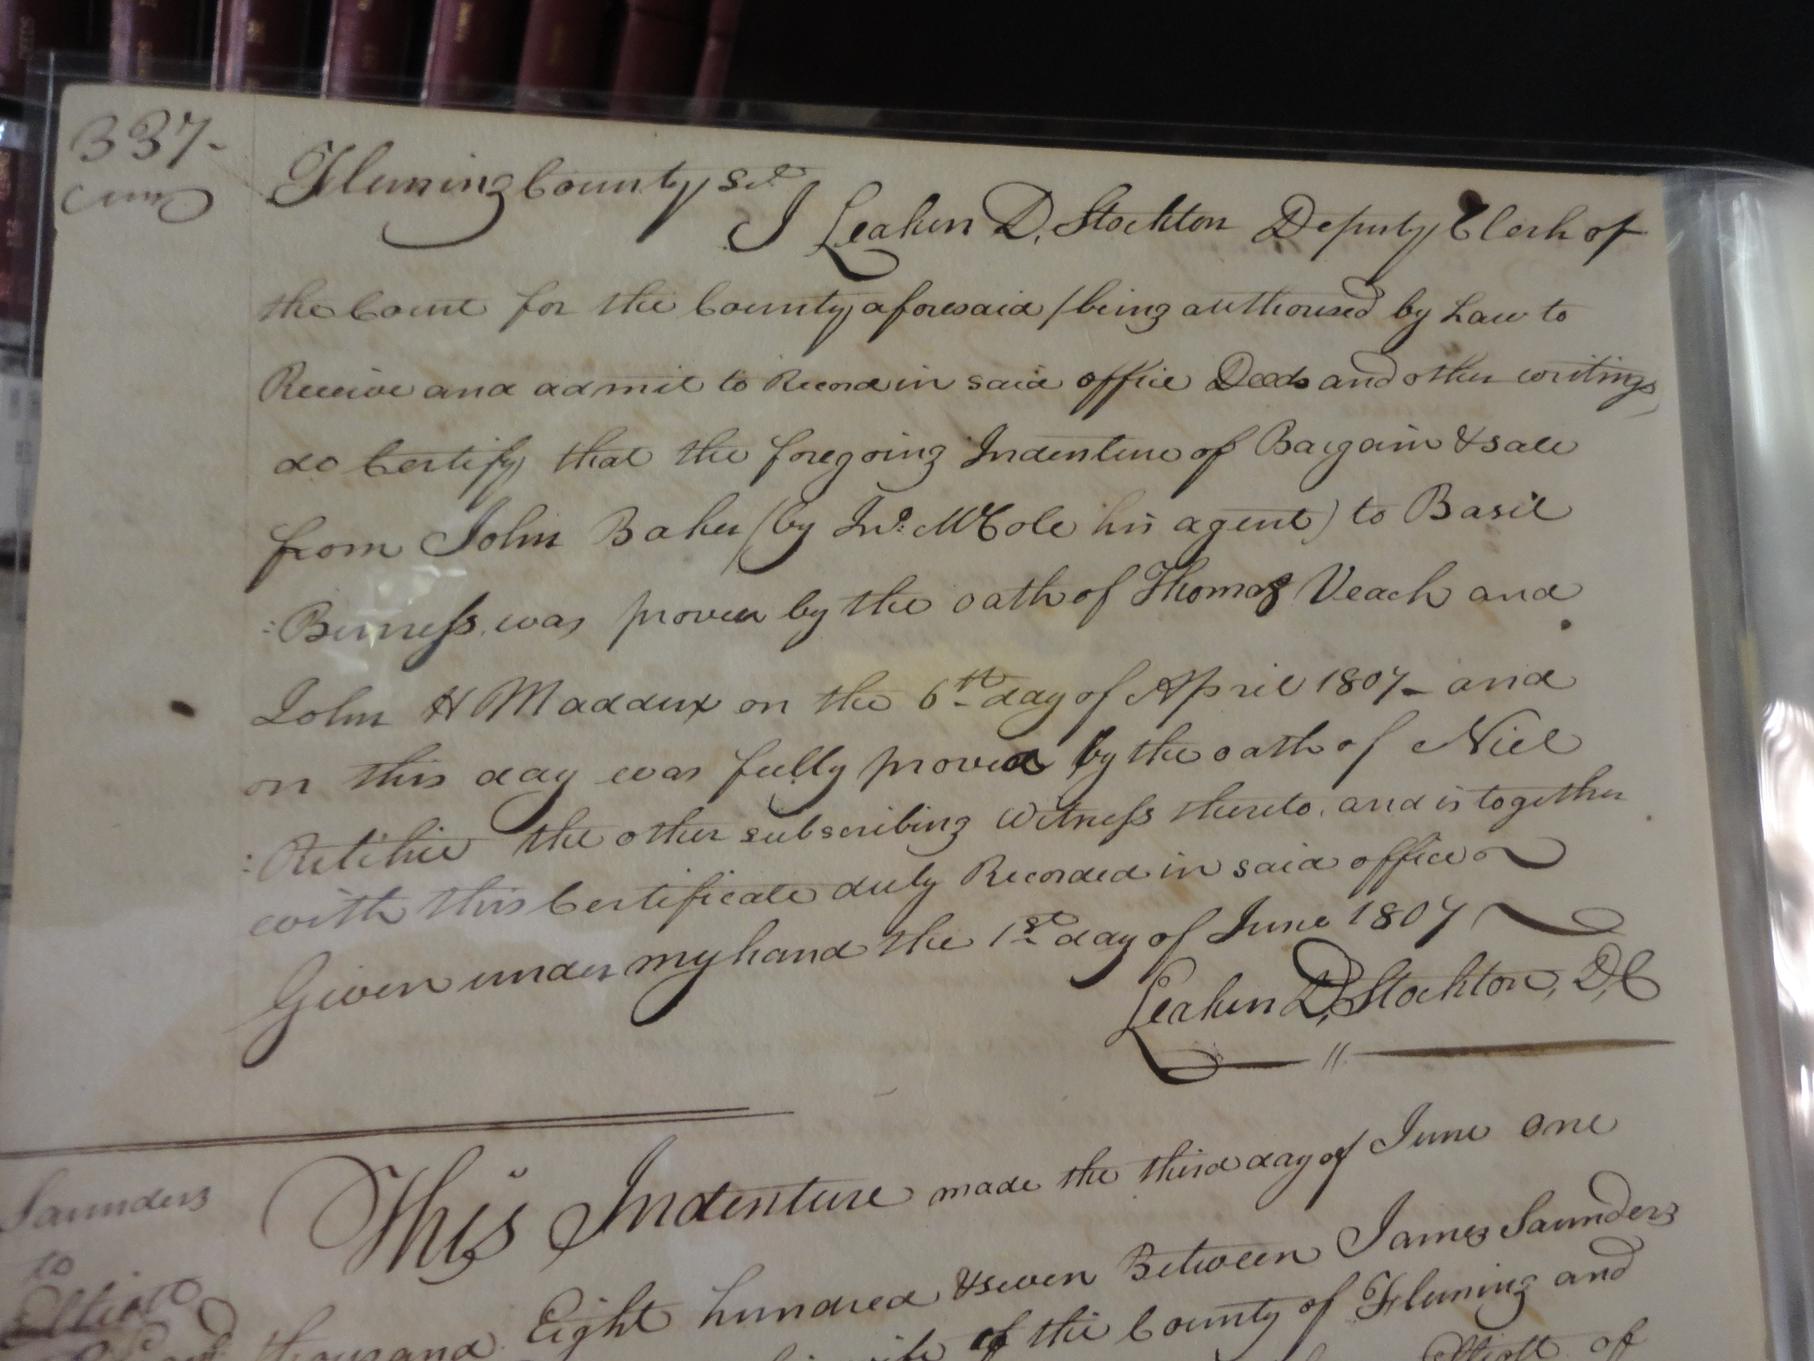 337-
Fleming County Sct
I Leaken D. Stockton Deputy Clerk of
the Court for the County aforesaid (being authorised by Law to
Receive and admit to Record in said office Deeds and other writings,
do Certify that the foregoing Indenture of Bargain & sale
from John Baker (by Jno. McCole his agent) to Basil
:Burness. was proven by the oath of Thomas Veach and
John H Maddux on the 6th day of April 1807- and
on this day was fully proved by the oath of Niel
:Ritchie the other subscribing Witness thereto. and is together
with this Certificate duly Recorded in said office
Given under my hand the 1st day of June 1807
Leaken D. Stockton, D,C
Saunders
to
Elliott
This Indenture made the third day of June one
thousand Eight hundred & seven Between James Saunders
wife of the County of Fleming and
Elliott of